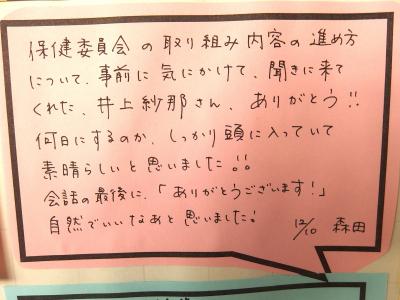 保健委員会の取り組み内容の進め方
について、事前に気にかけて、聞きに来て
くれた、井上紗那さん、ありがとう!!
何日にするのか、しっかり頭に入っていて
素晴らしいと思いました!!
会話の最後に、「ありがとうございます!」
自然でいいなあと思いました!
12/10 森田